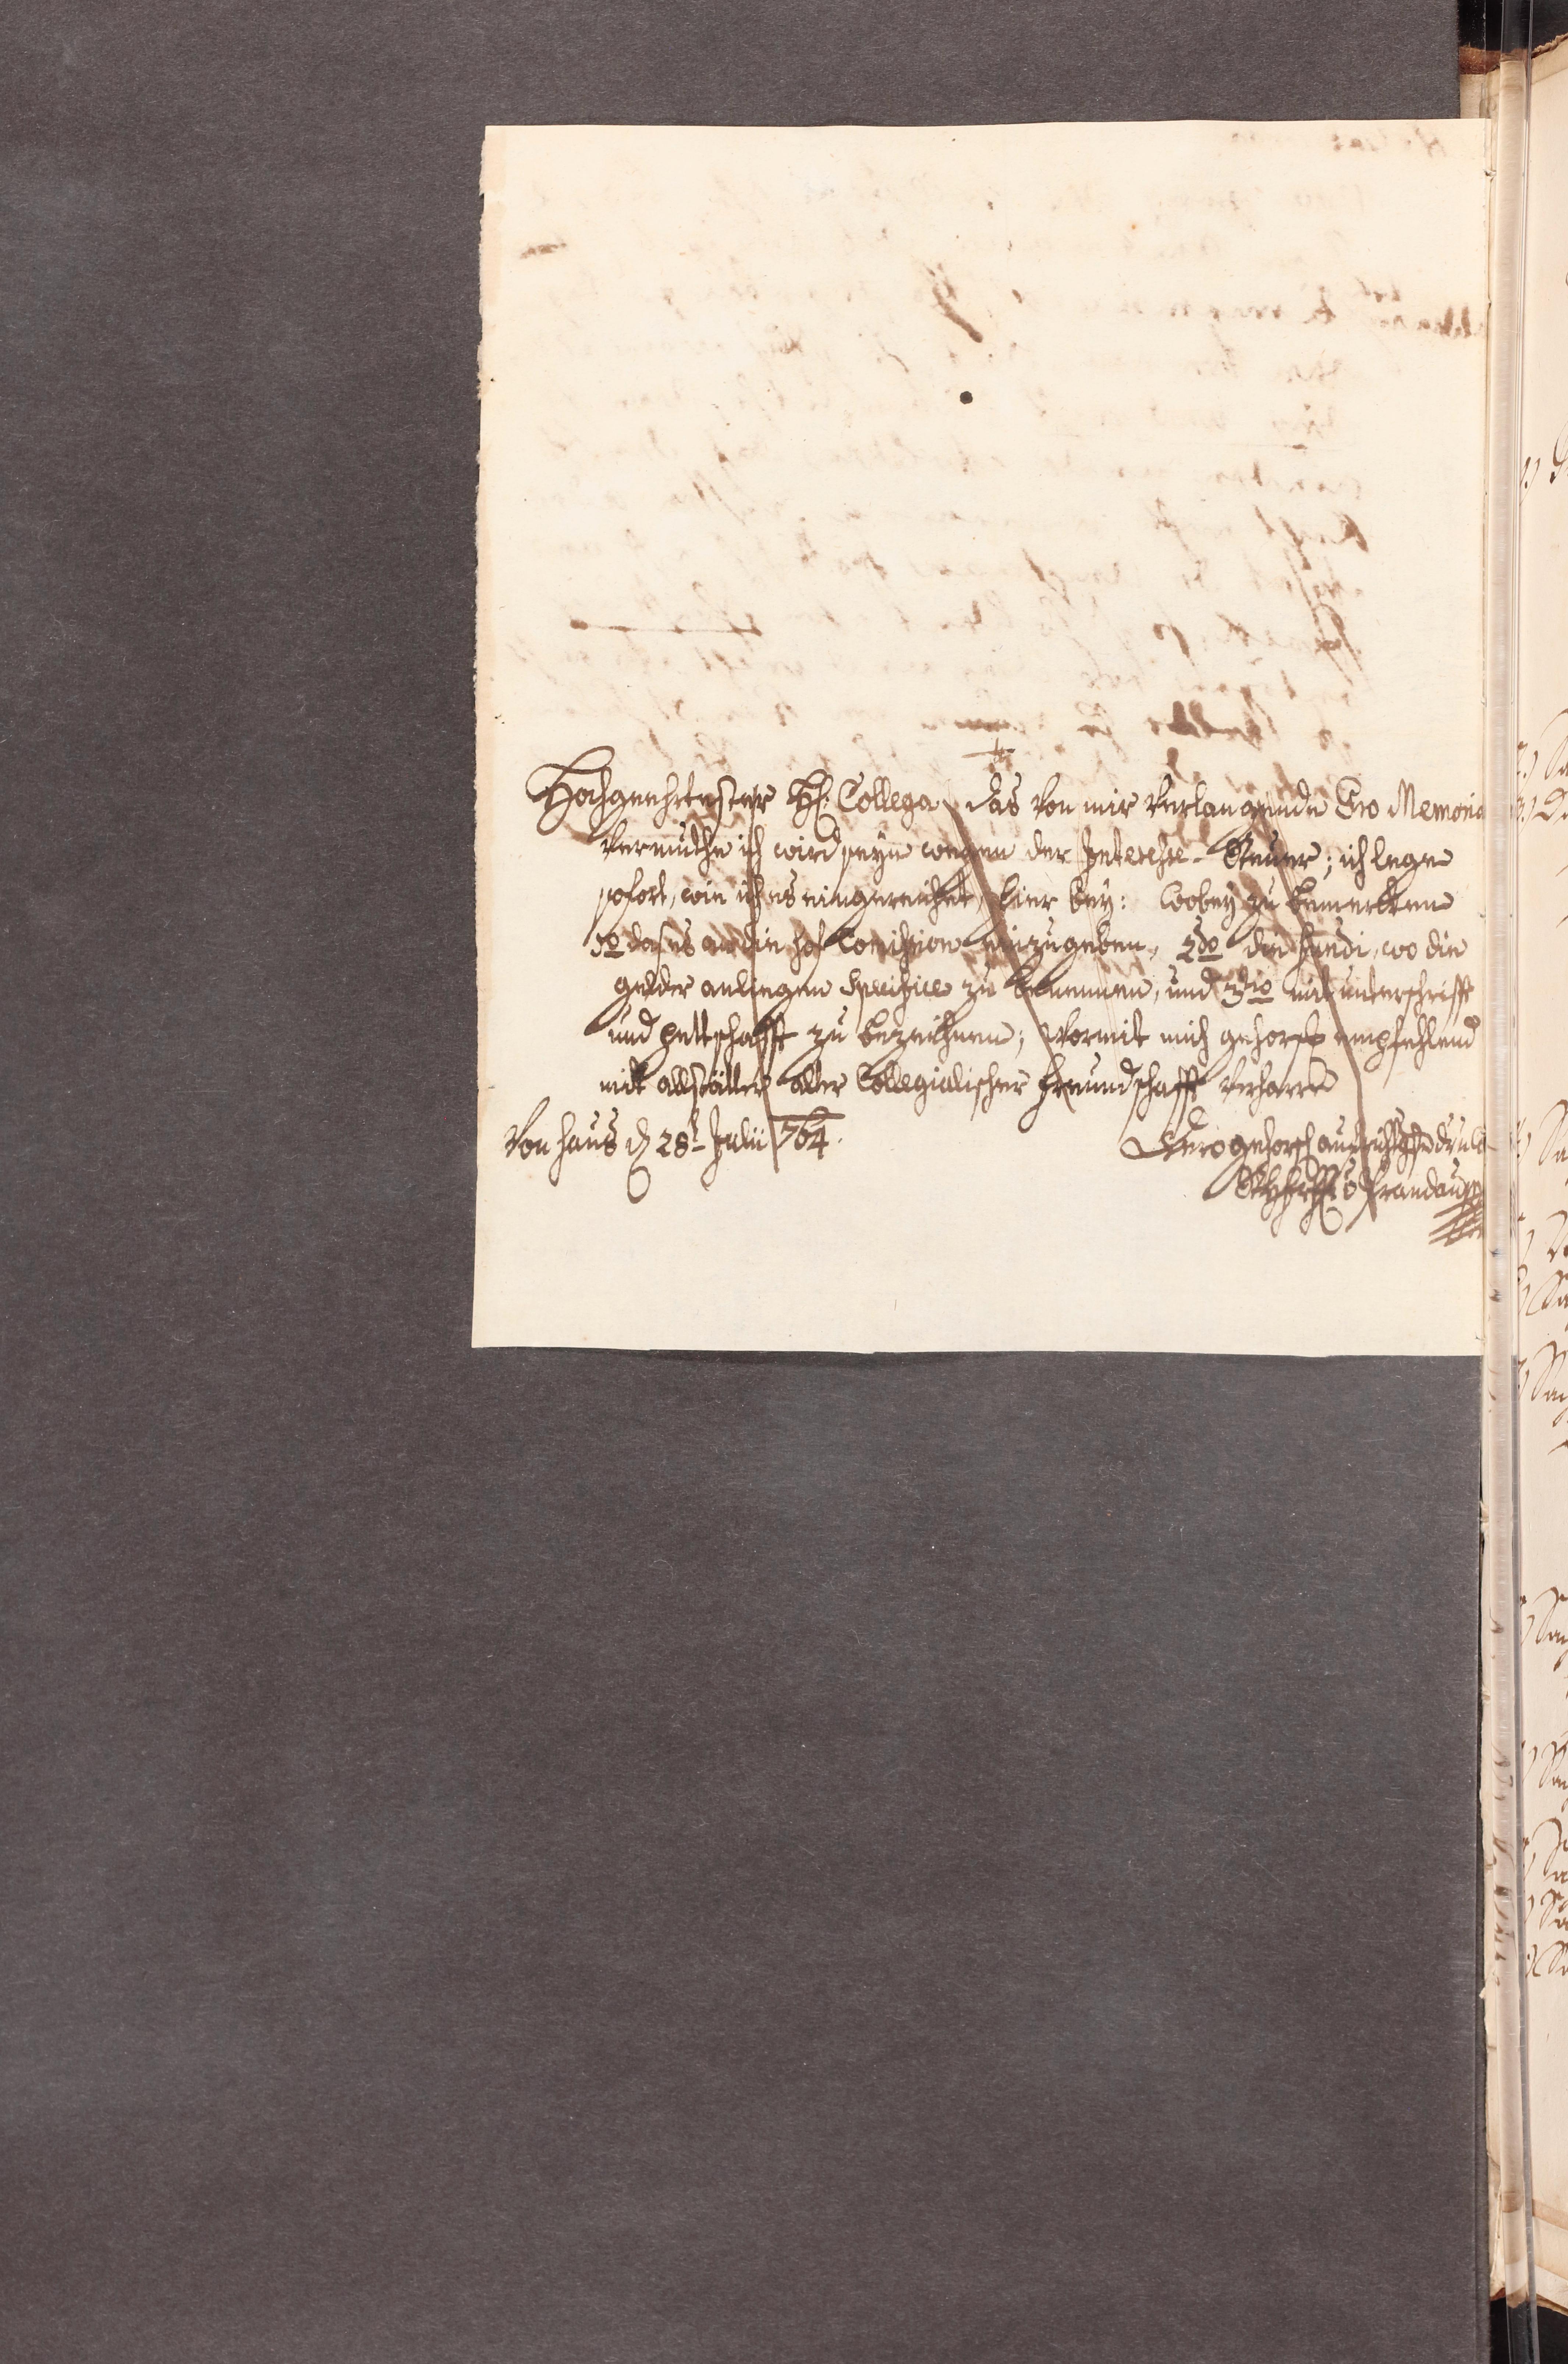 Hochgeehrtester H: Collega das von mir verlangende Pro Memoria
vermuthe ich wird seyn wegen der Interesse-Steuer; ich lege
sofort, wie ich es eingereichet, hier bey: wobey zu bemerken
1mo das es an die hof Comission einzugeben, 2do die Fundi, wo die
gelder anliegen Specifice zu benennen, und 3tio mit unterschrifft
und pettschafft zu bezeichnen; wormit mich gehors empfehlend
mit aller Collegialischer freundschafft verharre
Von haus d 28t Julii 764.
Dero gehors